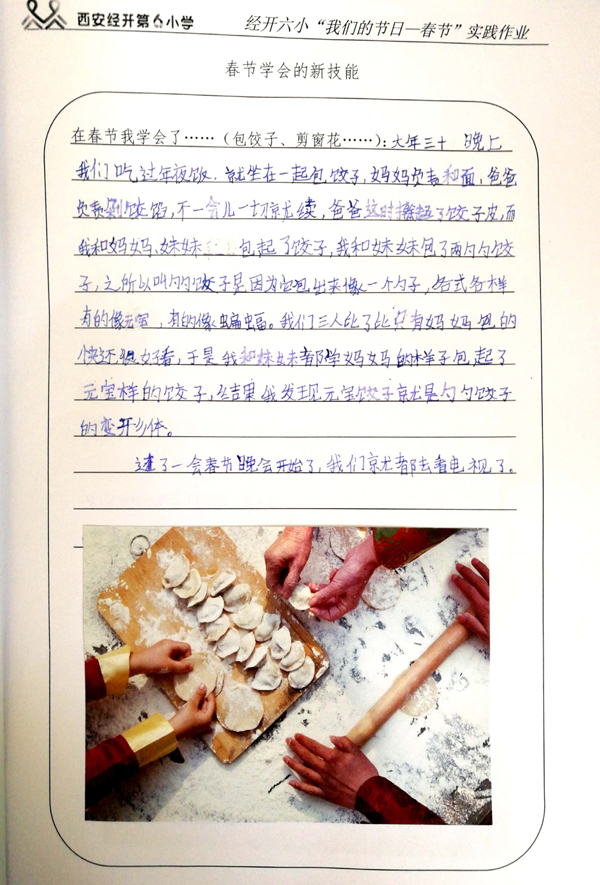 西安经开第6小学
经开六小“我们的节日—春节”实践作业
春节学会的新技能
在春节我学会了……（包饺子、剪窗花……）：大年三十 晚上
我们吃过年夜饭，就坐在一起包饺子，妈妈负责和面，爸爸
负责剁饺馅，不一会儿一切就续，爸爸这时擀起了饺子皮，而
我和妈妈、妹妹包起了饺子，我和妹妹包了两勺勺饺
子，之所以叫勺勺饺子是因为它包出来像一个勺子，各式各样
有的像元宝，有的像蝙蝠。我们三人比了比只有妈妈包的
快还很好看，于是我和妹妹都学妈妈的样子包起了
元宝样的饺子，结果我发现元宝饺子就是勺勺饺子
的变开乡体。
过了一会春节晚会开始了，我们就都去看电视了。